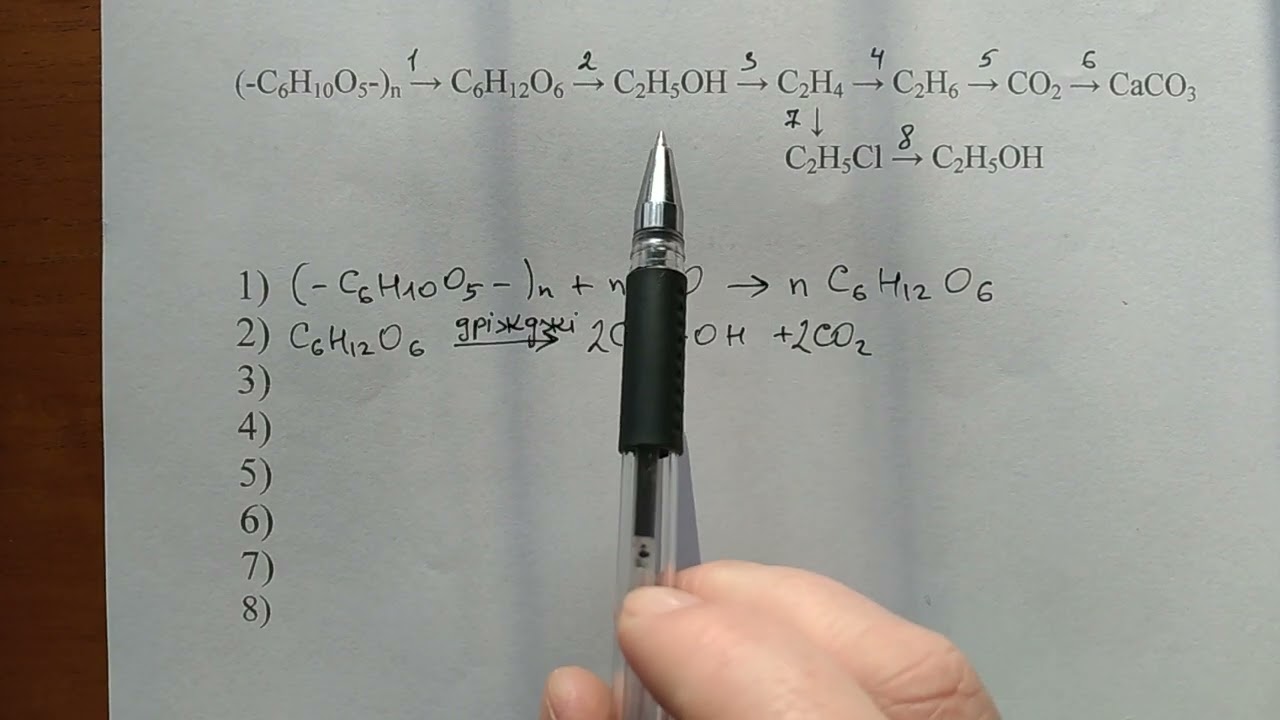 1 2 3 4 5 6
(-C₆H₁₀O₅-)ₙ → C₆H₁₂O₆ → C₂H₅OH → C₂H₄ → C₂H₆ → CO₂ → CaCO₃
7 ↓ 8
C₂H₅Cl → C₂H₅OH
1) (-C₆H₁₀O₅-)ₙ + n O → n C₆H₁₂O₆
2) C₆H₁₂O₆ дріжджі → 2C OH + 2CO₂
3)
4)
5)
6)
7)
8)